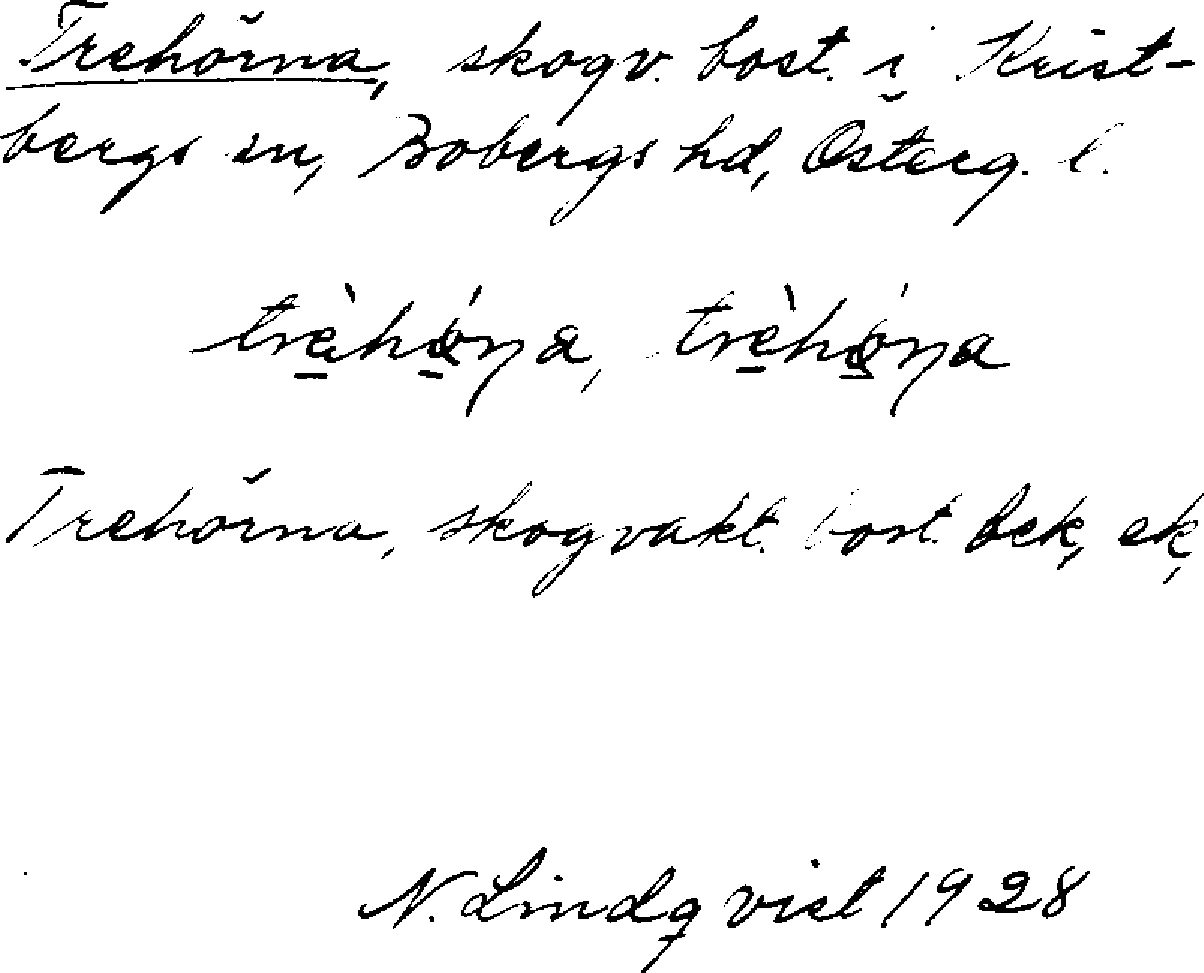 Trehörna, skogv. bost. i Krist-
bergs sn, Bobergs hd, Österg. l.
Trehörna, skogvakt. bost. bek, ek,
N. Lindqvist 1928